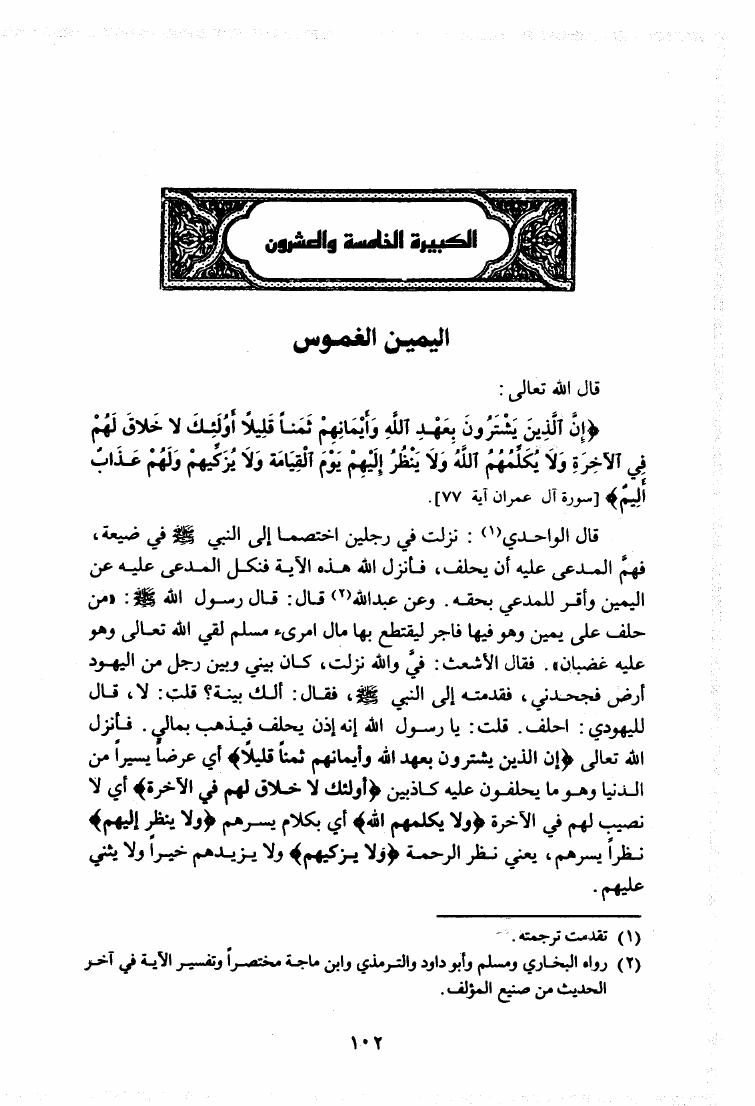 الكبيرة الخامسة والعشرون
اليمين الغموس
قال الله تعالى :
﴿إِنَّ ٱلَّذِينَ يَشْتَرُونَ بِعَهْدِ ٱللَّهِ وَأَيْمَانِهِمْ ثَمَنـاً قَلِيلًا أُوْلَئِكَ لَا خَلَاقَ لَهُمْ
فِي ٱلآخِرَةِ وَلَا يُكَلِّمُهُمُ ٱللَّهُ وَلَا يَنْظُرُ إِلَيْهِمْ يَوْمَ ٱلْقِيَامَةِ وَلَا يُزَكِّيهِمْ وَلَهُمْ عَذَابٌ
أَلِيمٌ﴾ [سورة آل عمران آية ٧٧].
قال الواحدي(١) : نزلت في رجلين اختصمـا إلى النبي ﷺ في ضيعة،
فهمَّ المدعى عليه أن يحلف، فأنزل الله هذه الآية فنكل المدعى عليه عن
اليمين وأقر للمدعي بحقه. وعن عبدالله(٢) قال: قال رسول الله ﷺ: «من
حلف على يمين وهو فيها فاجر ليقتطع بها مال امرىء مسلم لقي الله تعالى وهو
عليه غضبان». فقال الأشعث: فيَّ والله نزلت، كان بيني وبين رجل من اليهود
أرض فجحدني، فقدمته إلى النبي ﷺ، فقال: ألك بينة؟ قلت: لا، قال
لليهودي: احلف. قلت: يا رسول الله إنه إذن يحلف فيذهب بمالي. فأنزل
الله تعالى ﴿إن الذين يشترون بعهد الله وأيمانهم ثمناً قليلاً﴾ أي عرضاً يسيراً من
الدنيا وهو ما يحلفون عليه كاذبين ﴿أولئك لا خلاق لهم في الآخرة﴾ أي لا
نصيب لهم في الآخرة ﴿ولا يكلمهم الله﴾ أي بكلام يسرهم ﴿ولا ينظر إليهم﴾
نظراً يسرهم، يعني نظر الرحمة ﴿وَلا يزكيهم﴾ ولا يزيدهم خيراً ولا يثني
عليهم.
(١) تقدمت ترجمته.
(٢) رواه البخاري ومسلم وأبو داود والترمذي وابن ماجة مختصراً وتفسير الآية في آخر
الحديث من صنيع المؤلف.
١٠٢